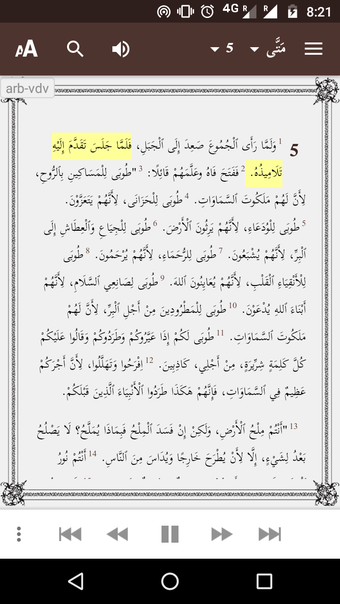 4G 8:21
AA 5 مَتَّى
arb-vdv
5 1 وَلَمَّا رَأَى ٱلْجُمُوعَ صَعِدَ إِلَى ٱلْجَبَلِ، فَلَمَّا جَلَسَ تَقَدَّمَ إِلَيْهِ
تَلَامِيذُهُ. 2 فَفَتَحَ فَاهُ وعَلَّمَهُمْ قَائِلًا: 3 "طُوبَى لِلْمَسَاكِينِ بِٱلرُّوحِ،
لِأَنَّ لَهُمْ مَلَكُوتَ ٱلسَّمَاوَاتِ. 4 طُوبَى لِلْحَزَانَى، لِأَنَّهُمْ يَتَعَزَّوْنَ.
5 طُوبَى لِلْوُدَعَاءِ، لِأَنَّهُمْ يَرِثُونَ ٱلْأَرْضَ. 6 طُوبَى لِلْجِيَاعِ وَٱلْعِطَاشِ إِلَى
ٱلْبِرِّ، لِأَنَّهُمْ يُشْبَعُونَ. 7 طُوبَى لِلرُّحَمَاءِ، لِأَنَّهُمْ يُرْحَمُونَ. 8 طُوبَى
لِلْأَنْقِيَاءِ ٱلْقَلْبِ، لِأَنَّهُمْ يُعَايِنُونَ ٱللهَ. 9 طُوبَى لِصَانِعِي ٱلسَّلَامِ، لِأَنَّهُمْ
أَبْنَاءَ ٱللهِ يُدْعَوْنَ. 10 طُوبَى لِلْمَطْرُودِينَ مِنْ أَجْلِ ٱلْبِرِّ، لِأَنَّ لَهُمْ
مَلَكُوتَ ٱلسَّمَاوَاتِ. 11 طُوبَى لَكُمْ إِذَا عَيَّرُوكُمْ وَطَرَدُوكُمْ وَقَالُوا عَلَيْكُمْ
كُلَّ كَلِمَةٍ شِرِّيرَةٍ، مِنْ أَجْلِي، كَاذِبِينَ. 12 اِفْرَحُوا وَتَهَلَّلُوا، لِأَنَّ أَجْرَكُمْ
عَظِيمٌ فِي ٱلسَّمَاوَاتِ، فَإِنَّهُمْ هَكَذَا طَرَدُوا ٱلْأَنْبِيَاءَ ٱلَّذِينَ قَبْلَكُمْ.
13 "أَنْتُمْ مِلْحُ ٱلْأَرْضِ، وَلَكِنْ إِنْ فَسَدَ ٱلْمِلْحُ فَبِمَاذَا يُمَلَّحُ؟ لَا يَصْلُحُ
بَعْدُ لِشَيْءٍ، إِلَّا لِأَنْ يُطْرَحَ خَارِجًا وَيُدَاسَ مِنَ ٱلنَّاسِ. 14 أَنْتُمْ نُورُ